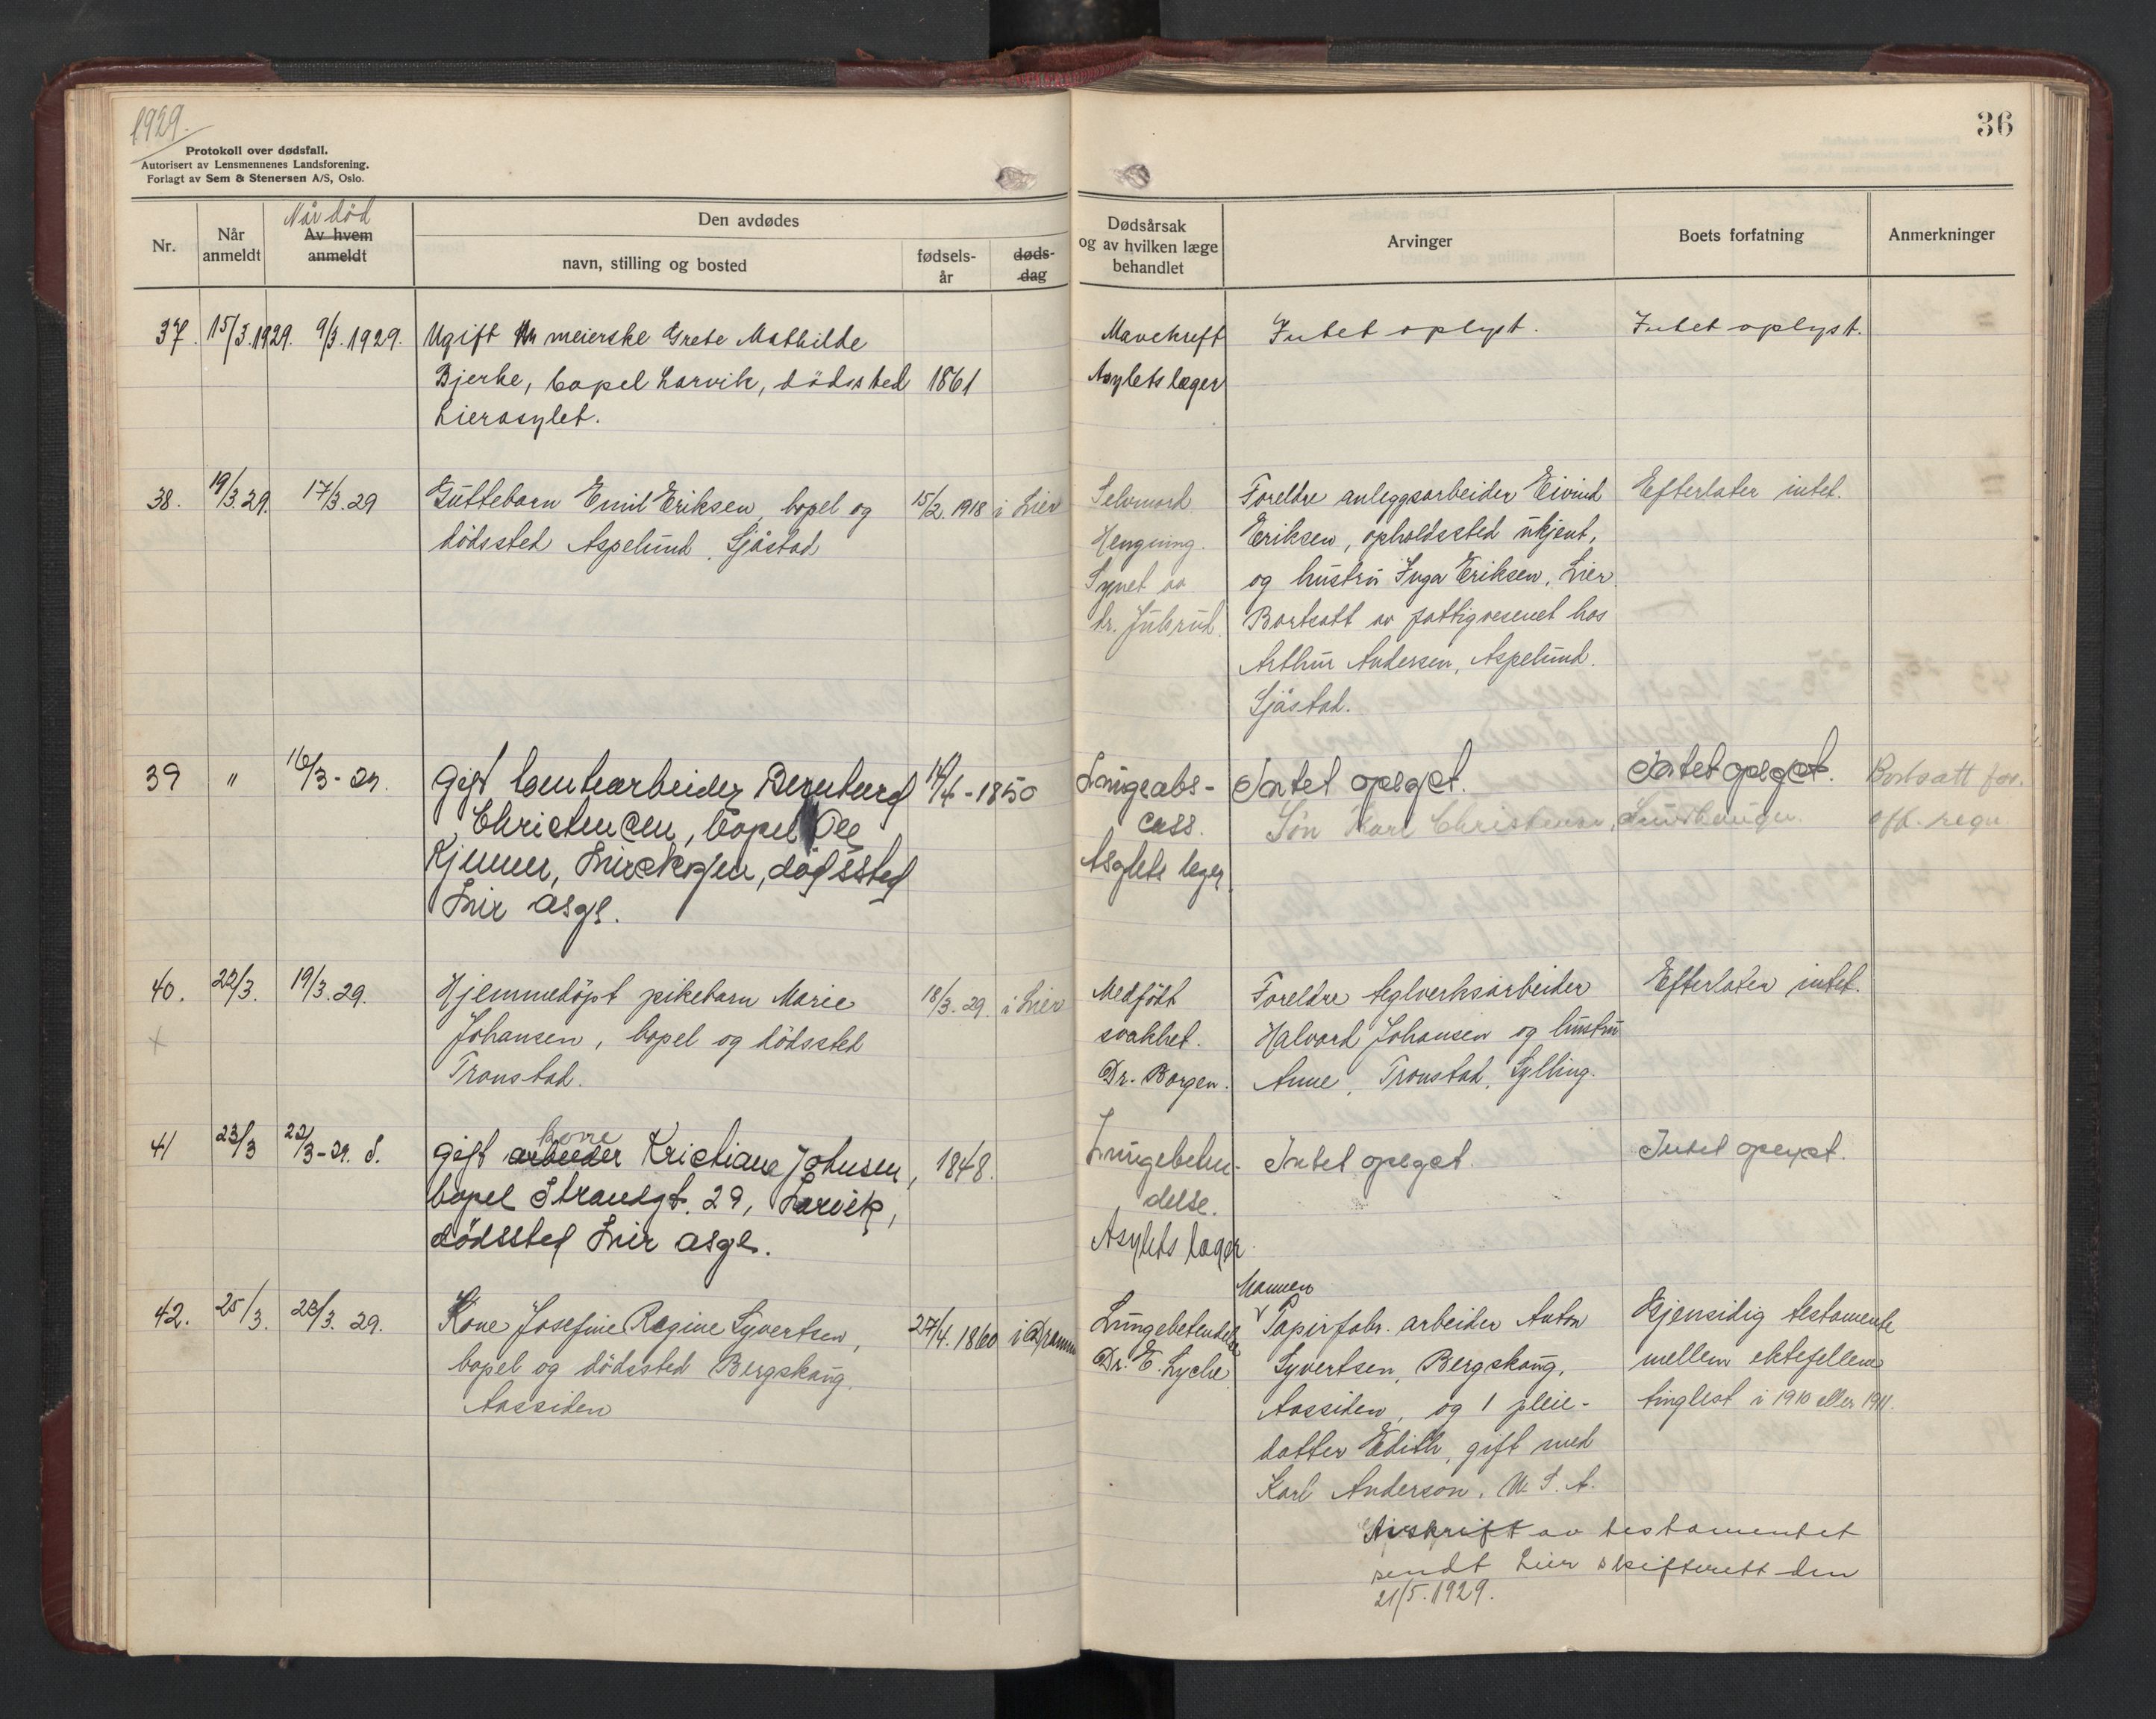 1929.
Protokoll over dødsfall.
Autorisert av Lensmennenes Landsforening.
Forlagt av Sem & Stenersen A/S, Oslo.
36
Nr.
Når anmeldt
Når død
Av hvem anmeldt
Den avdødes
navn, stilling og bosted
fødsels-
år
døds-
dag
Dødsårsak
og av hvilken læge
behandlet
Arvinger
Boets forfatning
Anmerkninger
37. 15/3.1929. 9/3.1929. Ugift meierske Grete Mathilde
Bjerke, bopel Larvik, dödssted 1861
Lierasylet.
Mavekreft
Asylets læger
Intet oplyst.
Intet oplyst.
38. 19/3.29. 17/3.29 Guttebarn Emil Eriksen, bopel og 15/2.1918 i Lier
dödssted Aspelund, Sjåstad
Selvmord.
Hengning.
Synet av
dr. Juhrud.
Foreldre anleggsarbeider Eivind
Eriksen, opholdssted ukjent,
og hustru Inga Eriksen, Lier.
Bortsatt av fattigvesenet hos
Arthur Andersen, Aspelund.
Sjåstad.
Efterlater intet.
39 " 16/3-29. Gift Bernhard 14/4-1850
Christensen, bopel Ole
Kjemer, Lierskogen, dødssted
Lier asyl.
Lungeabs-
cess.
Asylets leger
Intet oplyst.
Søn Karl Christensen,
Intet oplyst.
Bortsatt for
off. regn.
40. 22/3. 19/3.29. Hjemmedöpt pikebarn Marie 18/3.29. i Lier
Johansen, bopel og dödssted
Tronstad.
x
Medfödt
svakhet.
Dr. Borgen.
Foreldre teglverksarbeider
Halvard Johansen og hustru
Anne, Tronstad, Sylling.
Efterlater intet.
41 23/3 22/3-29. S. Gift arbeider kone Kristiane Johnsen, 1848.
bopel Strandgt. 29, Larvik,
dödssted Lier asyl.
Lungebeten-
delse.
Asylets læger.
Intet oplyst.
Intet oplyst.
42. 25/3. 23/3.29. Kone Josefine Regine Syvertsen, 27/4.1860 i Dramm
bopel og dödssted Bergskaug,
Aassiden
Lungebetendelse
Dr. E. Lyche
Mannen
Papirfabr. arbeider Anton
Syvertsen, Bergskaug,
Aassiden, og 1 pleie-
datter Edith, gift med
Karl Anderson, U. S. A.
Gjensidig testamente
mellem ektefellene
tinglest i 1910 eller 1911.
Avskrift av testamentet
sendt Lier skifterett den
21/5.1929.